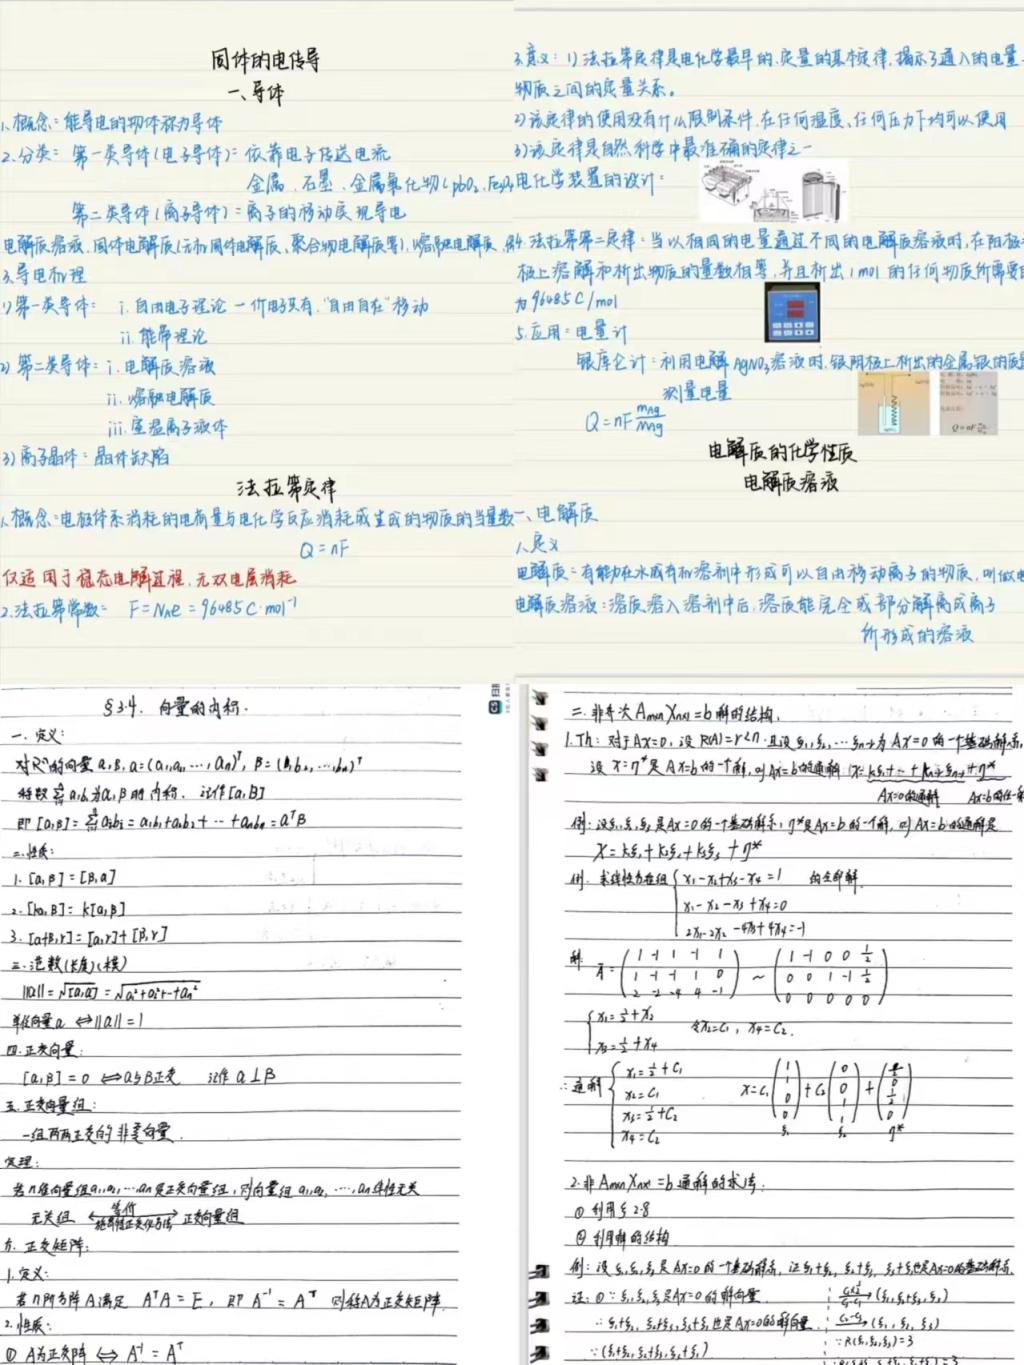 固体的电传导
一、导体
1、概念：能导电的物体称为导体
2、分类：第一类导体(电子导体)：依靠电子传送电流
金属、石墨、金属氧化物(pbO₂、Fe₃O₄
第二类导体(离子导体)：离子的移动实现导电
电解质溶液、固体电解质(无机固体电解质、聚合物电解质等)、熔融电解质、
3.导电机理
1)第一类导体： i.自由电子理论 一价电子只有"自由自在"移动
ii.能带理论
2)第二类导体：i.电解质溶液
ii.熔融电解质
iii.室温离子液体
3)离子晶体：晶体缺陷
法拉第定律
1.概念：电极体系消耗的电荷量与电化学反应消耗或生成的物质的当量数
Q = nF
仅适用于稳态电解过程，无双电层消耗
2.法拉第常数： F=Nₐe=96485C·mol⁻¹
3.意义：1)法拉第定律是电化学最早的、定量的基本定律，揭示了通入的电量
物质之间的定量关系。
2)该定律的使用没有什么限制条件，在任何温度、任何压力下均可以使用
3)该定律是自然科学中最准确的定律之一
电化学装置的设计：
4.法拉第第二定律：当以相同的电量通过不同的电解质溶液时，在阳极
极上溶解和析出物质的量数相等，并且析出1mol的任何物质所需要
为96485C/mol
5.应用：电量计
银库仑计：利用电解AgNO₃溶液时，银阴极上析出的金属银的质量
测量电量
Q=nF mAg/MAg
电解质的化学性质
电解质溶液
一、电解质
1、定义
电解质：有能够在水或有机溶剂中形成可以自由移动离子的物质，叫做电
电解质溶液：溶质溶入溶剂中后，溶质能完全或部分解离成离子
所形成的溶液
§3.4. 向量的内积.
一.定义：
对Rⁿ的向量α,β,α=(a₁,a₂,…,aₙ)ᵀ, β=(b₁,b₂,…,bₙ)ᵀ
称数 Σaᵢbᵢ为α,β的内积. 记作[α,β]
即[α,β]=Σaᵢbᵢ=a₁b₁+a₂b₂+…+aₙbₙ=αᵀβ
二.性质：
1.[α,β]=[β,α]
2.[kα,β]=k[α,β]
3.[α+β,γ]=[α,γ]+[β,γ]
三.范数(长度)(模)
||α||=√[α,α]=√a₁²+a₂²+…+aₙ²
单位向量α ⇔||α||=1
四.正交向量：
[α,β]=0 ⇔α与β正交 记作α⊥β
五.正交向量组：
一组两两正交的非零向量.
定理：
若n维向量组α₁,α₂,…,αₙ是正交向量组,则向量组α₁,α₂,…,αₙ线性无关
无关组 等价 施密特正交化方法 正交向量组
六.正交矩阵：
1.定义：
若n阶方阵A满足 AᵀA=E, 即A⁻¹=Aᵀ 则称A为正交矩阵.
2.性质：
① A为正交阵 ⇔ A⁻¹=Aᵀ
二.非齐次AₘₓₙXₙₓ₁=b解的结构.
1.Th：对于Ax=0,设R(A)=r<n.且设ξ₁,ξ₂,…ξₙ₋ᵣ为Ax=0的一个基础解系,
设x=η*是Ax=b的一个解,则Ax=b的通解 x=k₁ξ₁+…+kₙ₋ᵣξₙ₋ᵣ+η*
Ax=0的通解 Ax=b的任一
例：设ξ₁,ξ₂,ξ₃是Ax=0的一个基础解系,η*是Ax=b的一个解,则Ax=b的通解是
x=k₁ξ₁+k₂ξ₂+k₃ξ₃+η*
例. 求线性方程组 { x₁-x₂+x₃-x₄=1 的全部解.
x₁-x₂-x₃+x₄=0
2x₁-2x₂-4x₃+4x₄=-1
解 Ā= (1 -1 1 -1 1 ~ (1 -1 0 0 ½
1 -1 -1 1 0 0 0 1 -1 ½
2 -2 -4 4 -1) 0 0 0 0 0)
{ x₁=½+x₂ 令x₂=c₁, x₄=c₂.
x₃=½+x₄
∴通解 { x₁=½+c₁
x₂=c₁ x=c₁(1 1 0 0)+c₂(0 0 1 1)+(½ 0 ½ 0)
x₃=½+c₂
x₄=c₂ ξ₁ ξ₂ η*
2.非AₘₓₙXₙₓ₁=b通解的求法：
① 利用§2.8
② 利用解的结构
例：设ξ₁,ξ₂,ξ₃是Ax=0的一个基础解系, 证ξ₁+ξ₂, ξ₂+ξ₃, ξ₃+ξ₁也是Ax=0的基础解系.
证：①∵ξ₁,ξ₂,ξ₃是Ax=0的解向量
∴ξ₁+ξ₂, ξ₂+ξ₃, ξ₃+ξ₁也是Ax=0的解向量
∵(ξ₁+ξ₂,ξ₂+ξ₃,ξ₃+ξ₁)
(ξ₁,ξ₂,ξ₃)
∵R(ξ₁,ξ₂,ξ₃)=3